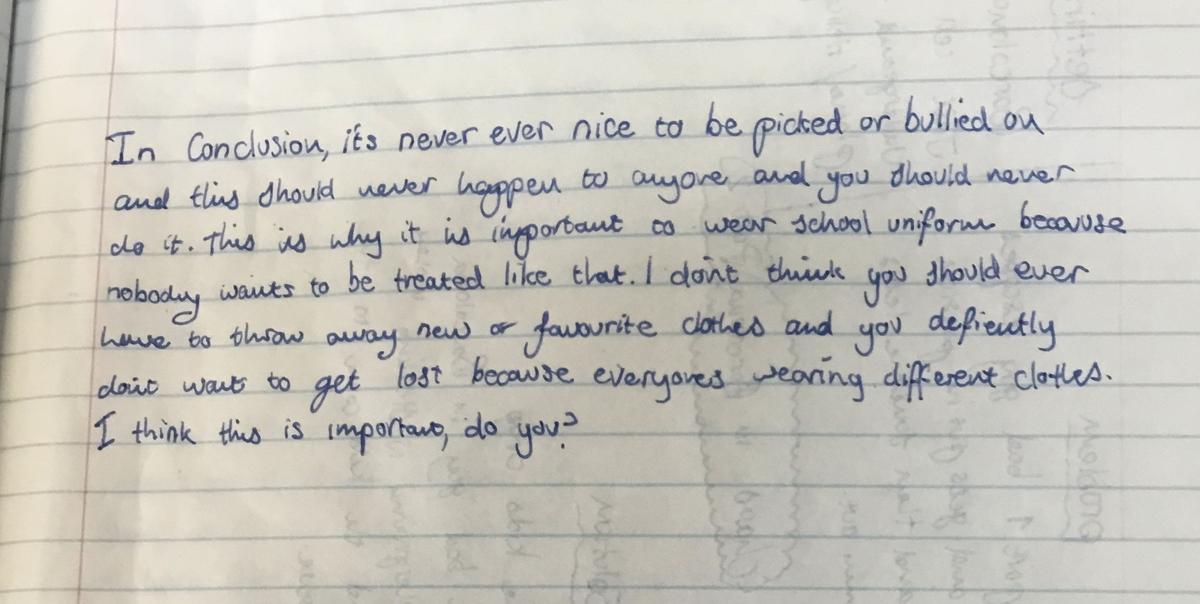 In Conclusion, it's never ever nice to be picked or bullied on
and this should never happen to anyone and you should never
do it. This is why it is important to wear school uniform because
nobody wants to be treated like that. I don't think you should ever
have to throw away new or favourite clothes and you defiently
don't want to get lost because everyones wearing different clothes.
I think this is important, do you?